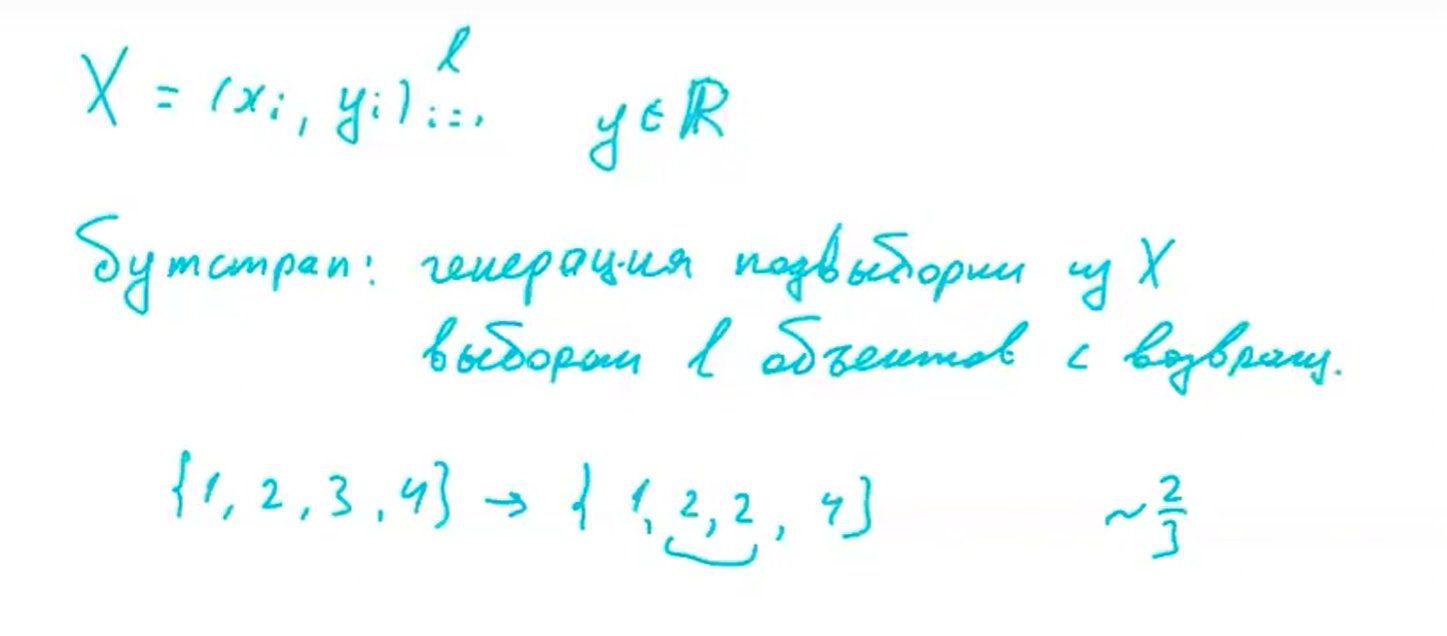 X = (xᵢ, yᵢ)ᵢ₌₁ˡ y ∈ ℝ
Бутстрап: генерация подвыборки из X
выбором l объектов с возвращ.
{1, 2, 3, 4} → {1, 2, 2, 4} ~ 2/3